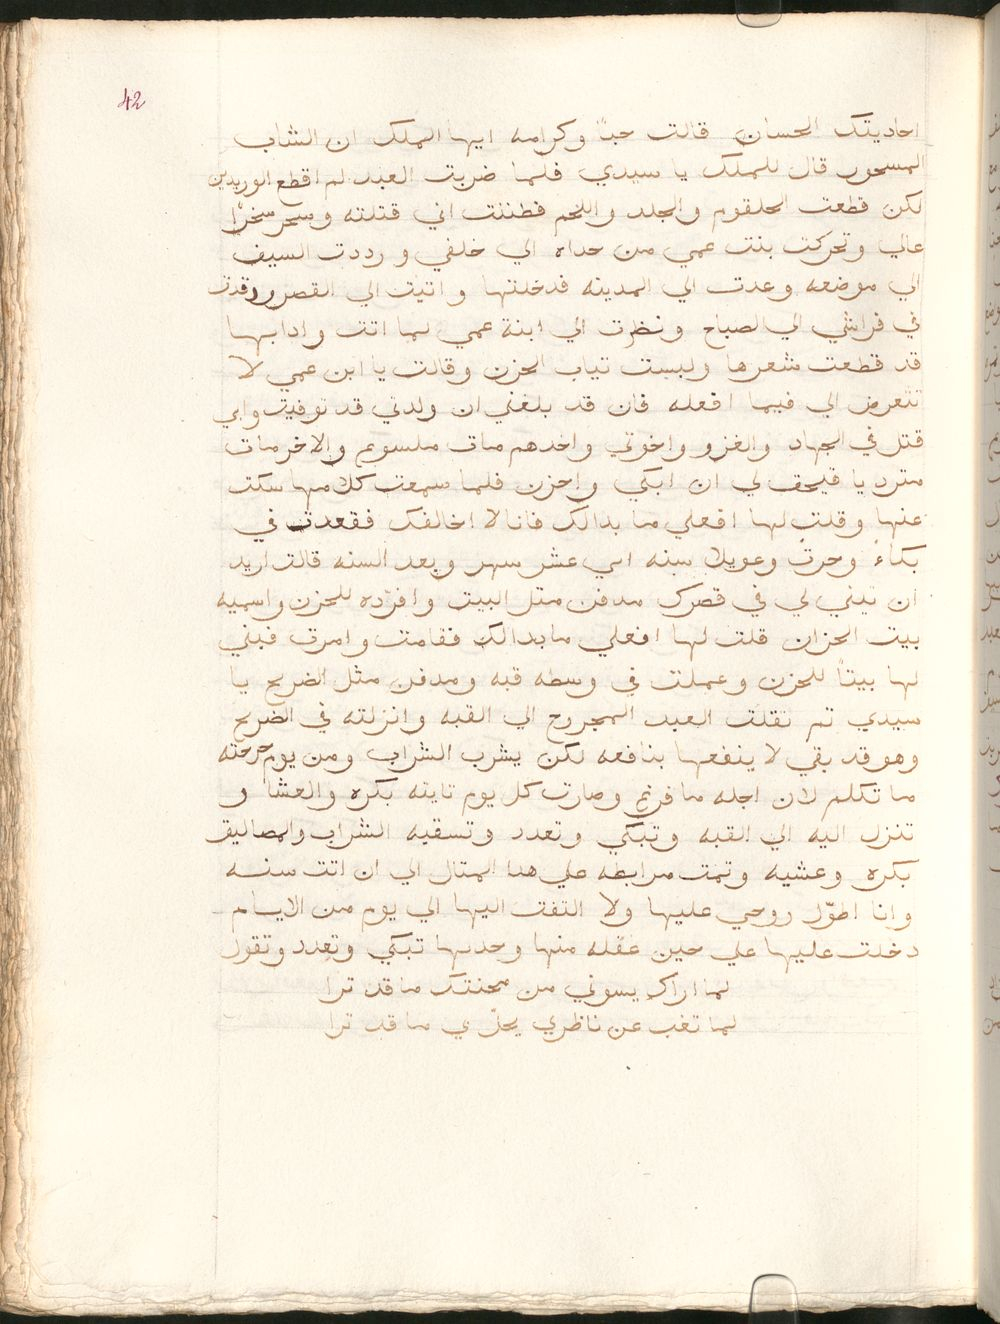 42
احاديتك الحسان قالت حباً وكرامه ايها الملك ان الشاب
المسحور قال للملك يا سيدي فلما ضربت العبد لم اقطع الوريدين
لكن قطعت الحلقوم والجلد واللحم فظننت اني قتلته وسحر سخرًا
عالي وتحركت بنت عمي من حداه الي خلفي ورددت السيف
الي موضعه وعدت الي المدينه فدخلتها واتيت الي القصر ورقدت
في فراشي الي الصباح ونظرت الي ابنة عمي لما اتت وادا بها
قد قطعت شعرها ولبست تياب الحزن وقالت يا ابن عمي لا
تتعرض الي فيما افعله فان قد بلغني ان ولدتي قد توفيت وابي
قتل في الجهاد والغزو واخوتي واحدهم مات ملسوع والاخر مات
متردياً فيحق لي ان ابكي واحزن فلما سمعت كلامها سكت
عنها وقلت لها افعلي ما بدالك فانا لا اخالفك فقعدت في
بكاءً وحزن وعويل سنه اتني عشر سهر وبعد السنه قالت اريد
ان تبني لي في قصرك مدفن متل البيت وافرده للحزن واسميه
بيت الحزان قلت لها افعلي ما بدالك فقامت وامرت فبني
لها بيتاً للحزن وعملت في وسطه قبه ومدفن مثل الضريح يا
سيدي تم نقلت العبد المجروح الي القبه وانزلته في الضريح
وهو قد بقي لا ينفعها بنافعه لكن يشرب الشراب ومن يوم جرحته
ما تكلم لان اجله ما فرغ وصارت كل يوم تاتيه بكره والعشا و
تنزل اليه الي القبه وتبكي وتعدد وتسقيه الشراب والمصاليق
بكره وعشيه وتمت مرابطه علي هدا المتال الي ان اتت سنه
وانا اطوّل روحي عليها ولا التفت اليها الي يوم من الايام
دخلت عليها علي حين غفله منها وجدتها تبكي وتعدد وتقول
لما اراك يسوني من محنتك ما قد ترا
لما تغب عن ناظري يحلّ ي ما قد ترا